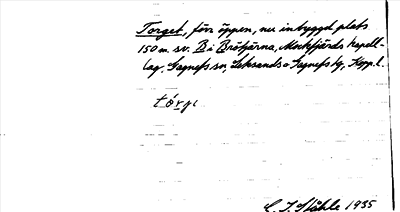 Torget, förr öppen, nu inbyggd plats
150 m. sv. B i Bröttjärna, Mockfjärds kapell-
lag, Gagnefs sn, Leksands o Gagnefs tg, Kopp. l.
tórje
C. I. Ståhle 1935